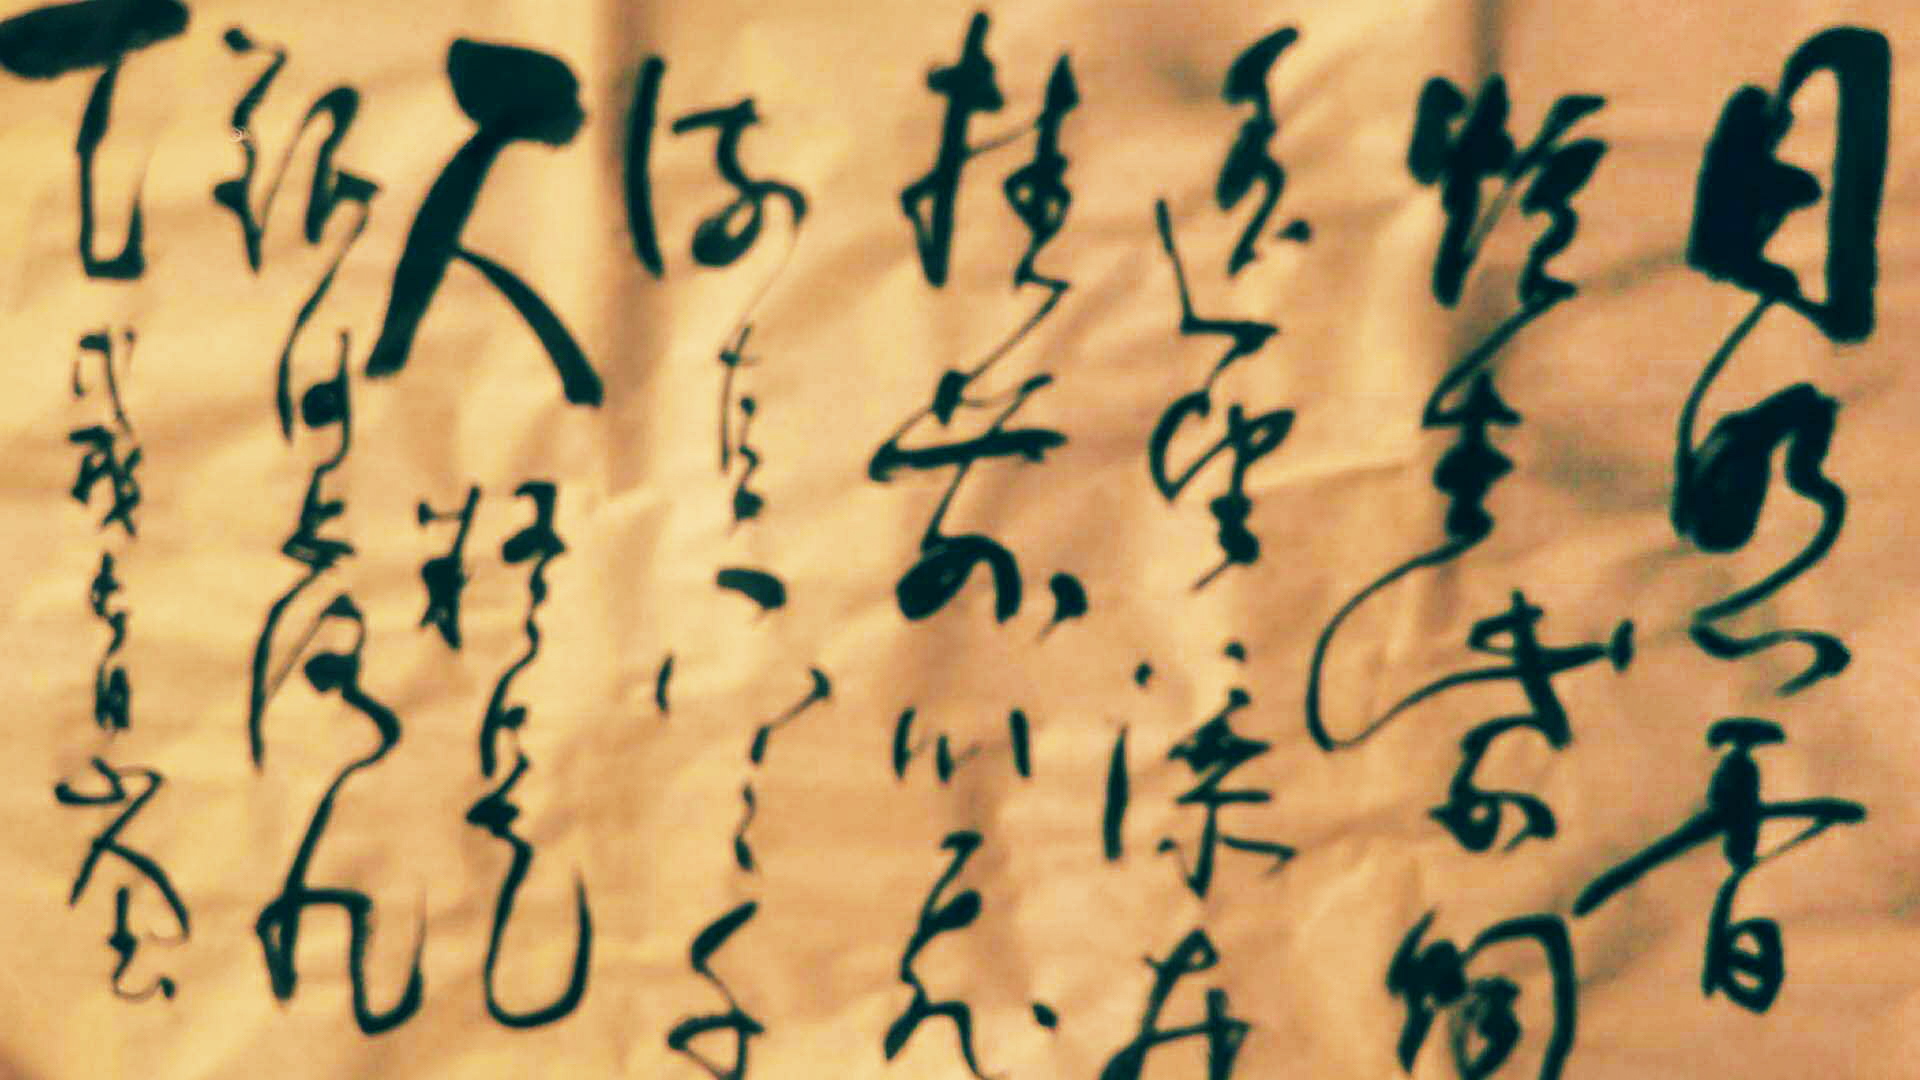 日照香
炉生紫烟
遥望瀑布
挂前川飞
流直下三千
尺疑是
银河落九
天 戊戌七月山人书